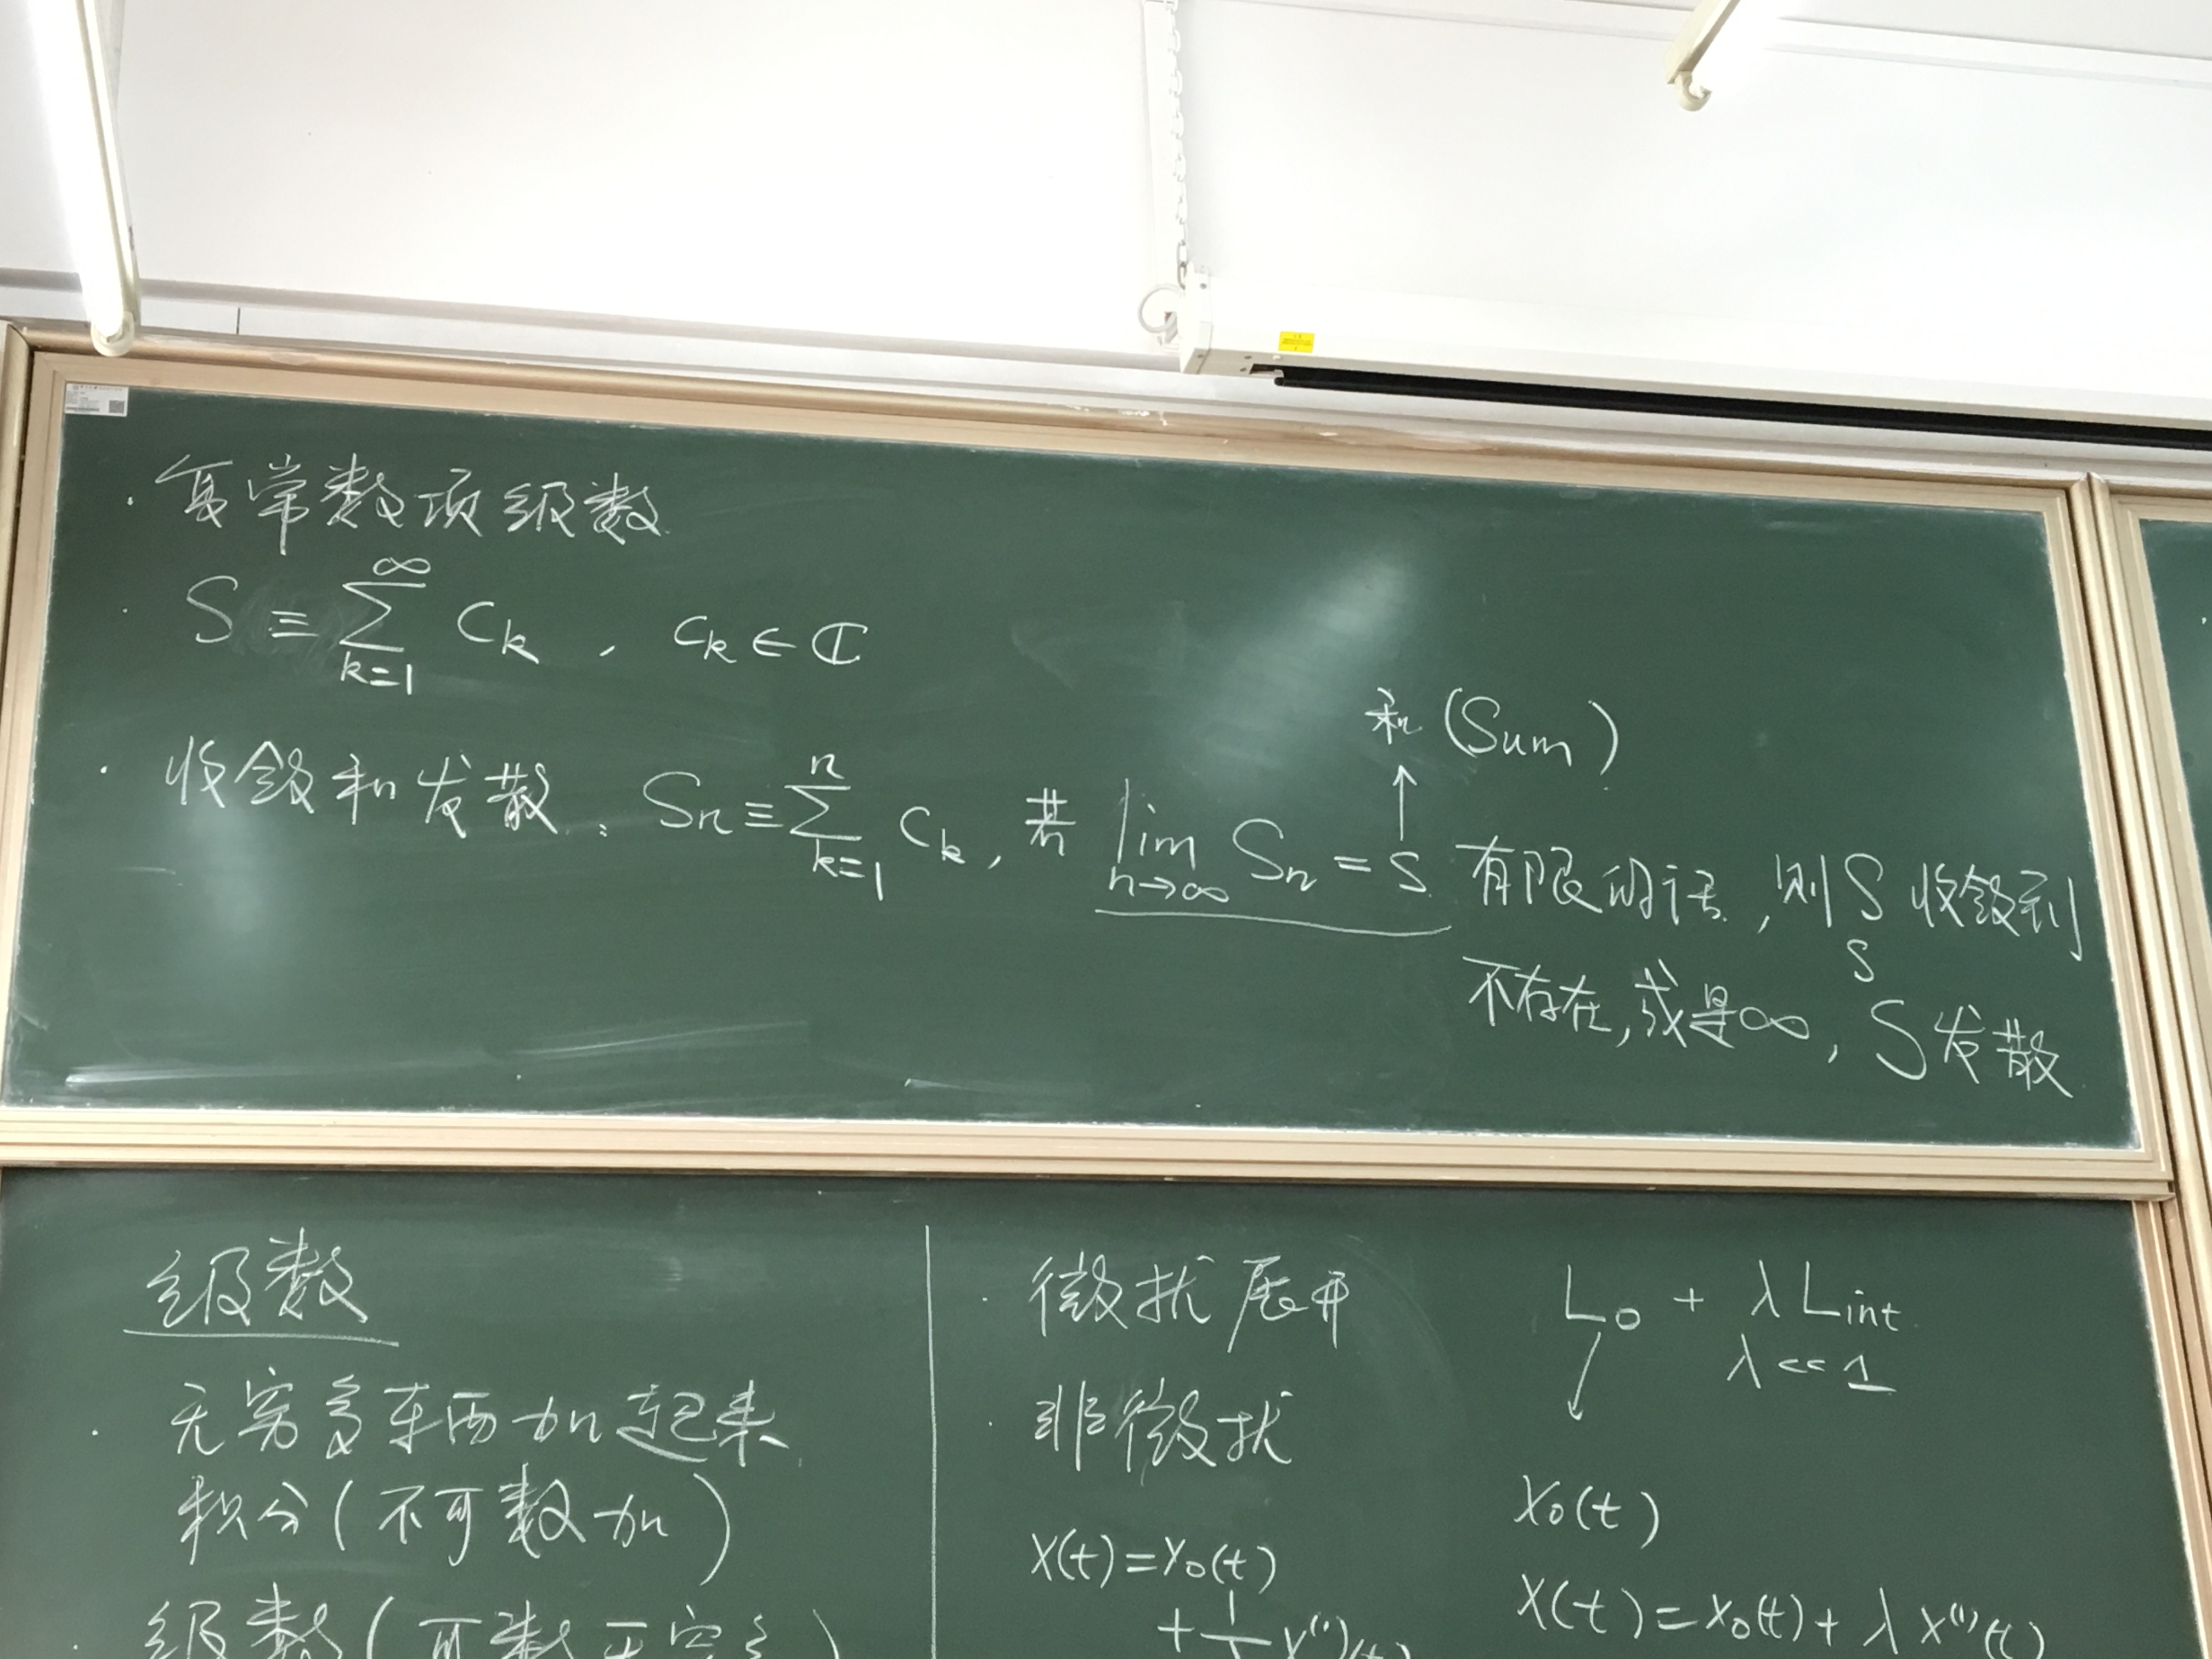 · 复常数项级数
· S ≡ ∑_{k=1}^{∞} c_k , c_k ∈ ℂ
和 (Sum)
↑
· 收敛和发散: S_n ≡ ∑_{k=1}^{n} c_k, 若 lim_{n→∞} S_n = s 有限的话, 则 S 收敛到
s
不存在, 或是∞, S发散
级数
· 无穷多东西加起来
积分(不可数加)
· 级数(可数无穷多)
· 微扰展开
· 非微扰
x(t)=x_0(t)
+ 1/λ x^{(1)}(t)
L_0 + λ L_int
λ << 1
x_0(t)
x(t)=x_0(t)+ λ x^{(1)}(t)